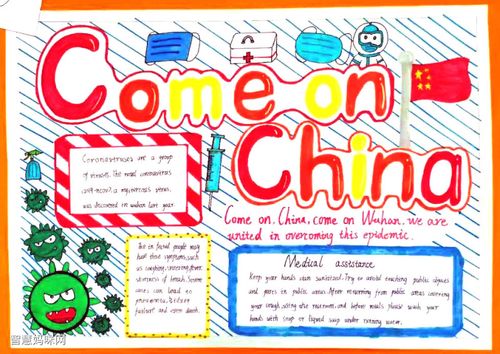 Come on
China
Come on, China, come on Wuhan, we are
united in overcoming this epidemic.
Coronaviruses are a group
of viruses. The novel coronavirus
a mysterious virus,
was discovered in wuhan last year
Medical assistance
Keep your hands sanitized. Try to avoid touching public
and in public areas. After returning from public areas covering
your cough, using the restroom, and before meals please wash your
hands with soap or liquid soap under running water.
such as coughing, sneezing, fever,
shortness of breath. Severe
cases can lead to
pneumonia, kidney
failure and even death.
智慧妈咪网